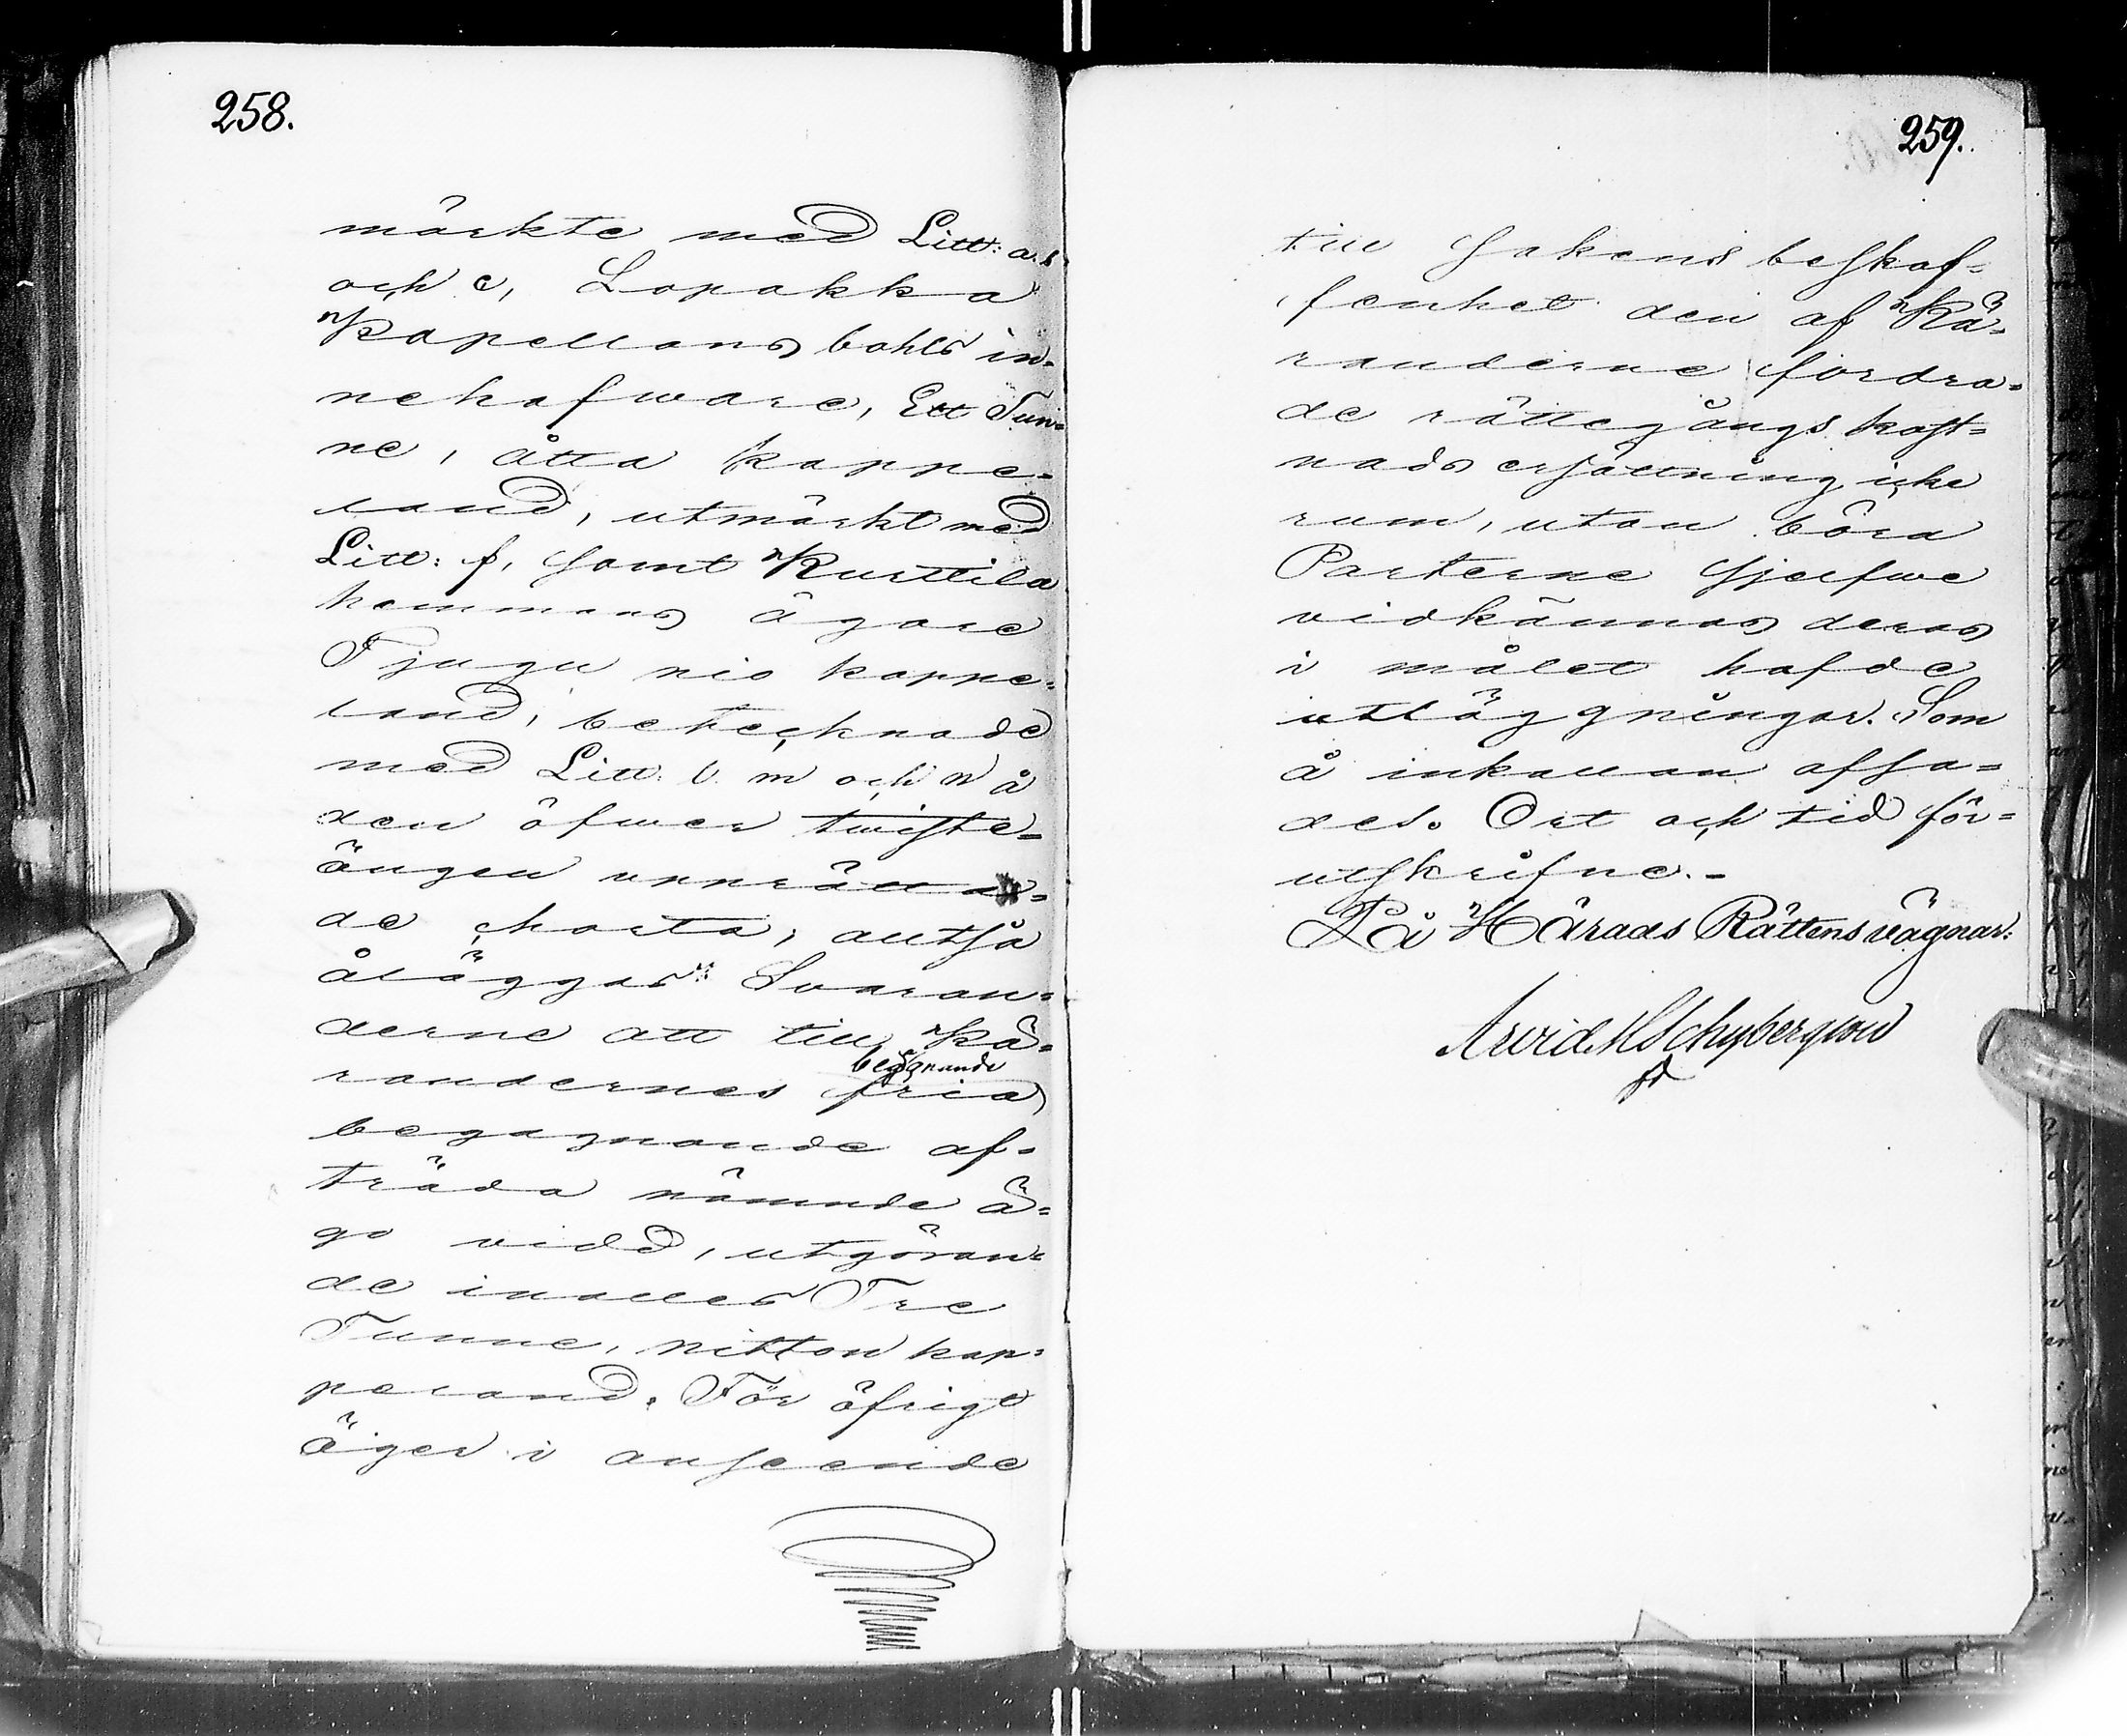 258.
märkte med Litt: a. b
och c, Lopakka
Kapellans bohls in-
nehafware, Ett Tun-
ne, åtta kappe-
land, utmärkt med
Litt: f, samt Kurttila
hemmans ägare
Tjugu nio kappe-
land, betecknade
med Litt. l. m och n å
den öfwer twiste-
ängen upprätta-
de charta, altså
åläggas Svaran-
derne att till Kä-
begagnande
randernes fria
begagnande af-
träda nämnde ä-
go vidd, utgöran-
de inalles Tre
Tunne, nitton kap-
peland. För öfrigt
äger i anseende
259.
till sakens beskaf-
fenhet den af Kä-
randerne fordra-
de rättegångs kost-
nads ersättning icke
rum, utan böra
Parterne sjelfwe
vidkännas deras
i målet hafde
utläggningar. Som
å inkallan afsa-
des. Ort och tid för-
utskrifne.-
På Härads Rättens vägnar:
Arvid M Schybergson